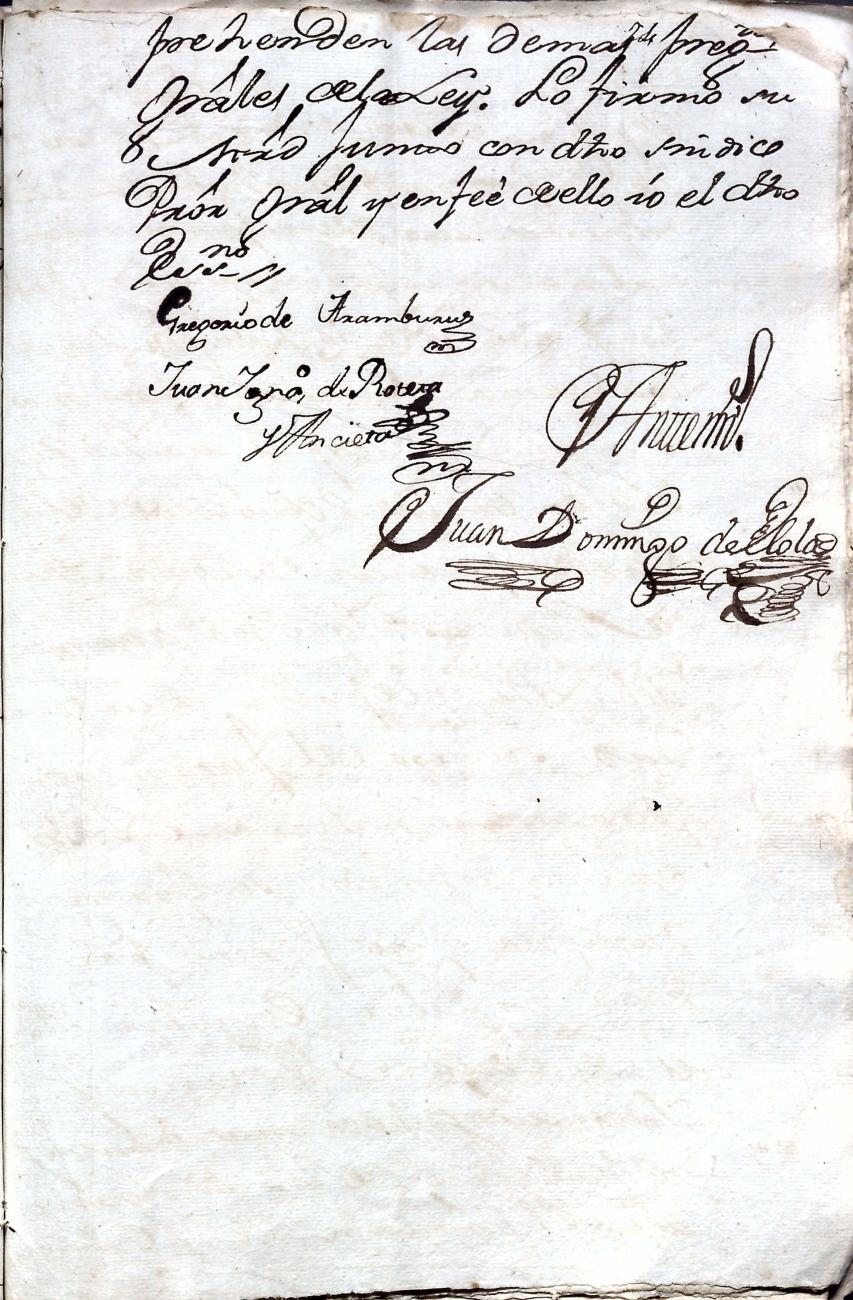 prehenden las demas preg.tas
Grâles dela Ley. Lo firmò su
Mrâd junto con dho sindico
Prôr Grâl y en feè de ello io el dho
Ess.no
Gregorio de Aramburu
Juan Ign.o de Roteta
y Ancieta
Antemi
Juan Domingo de Elola